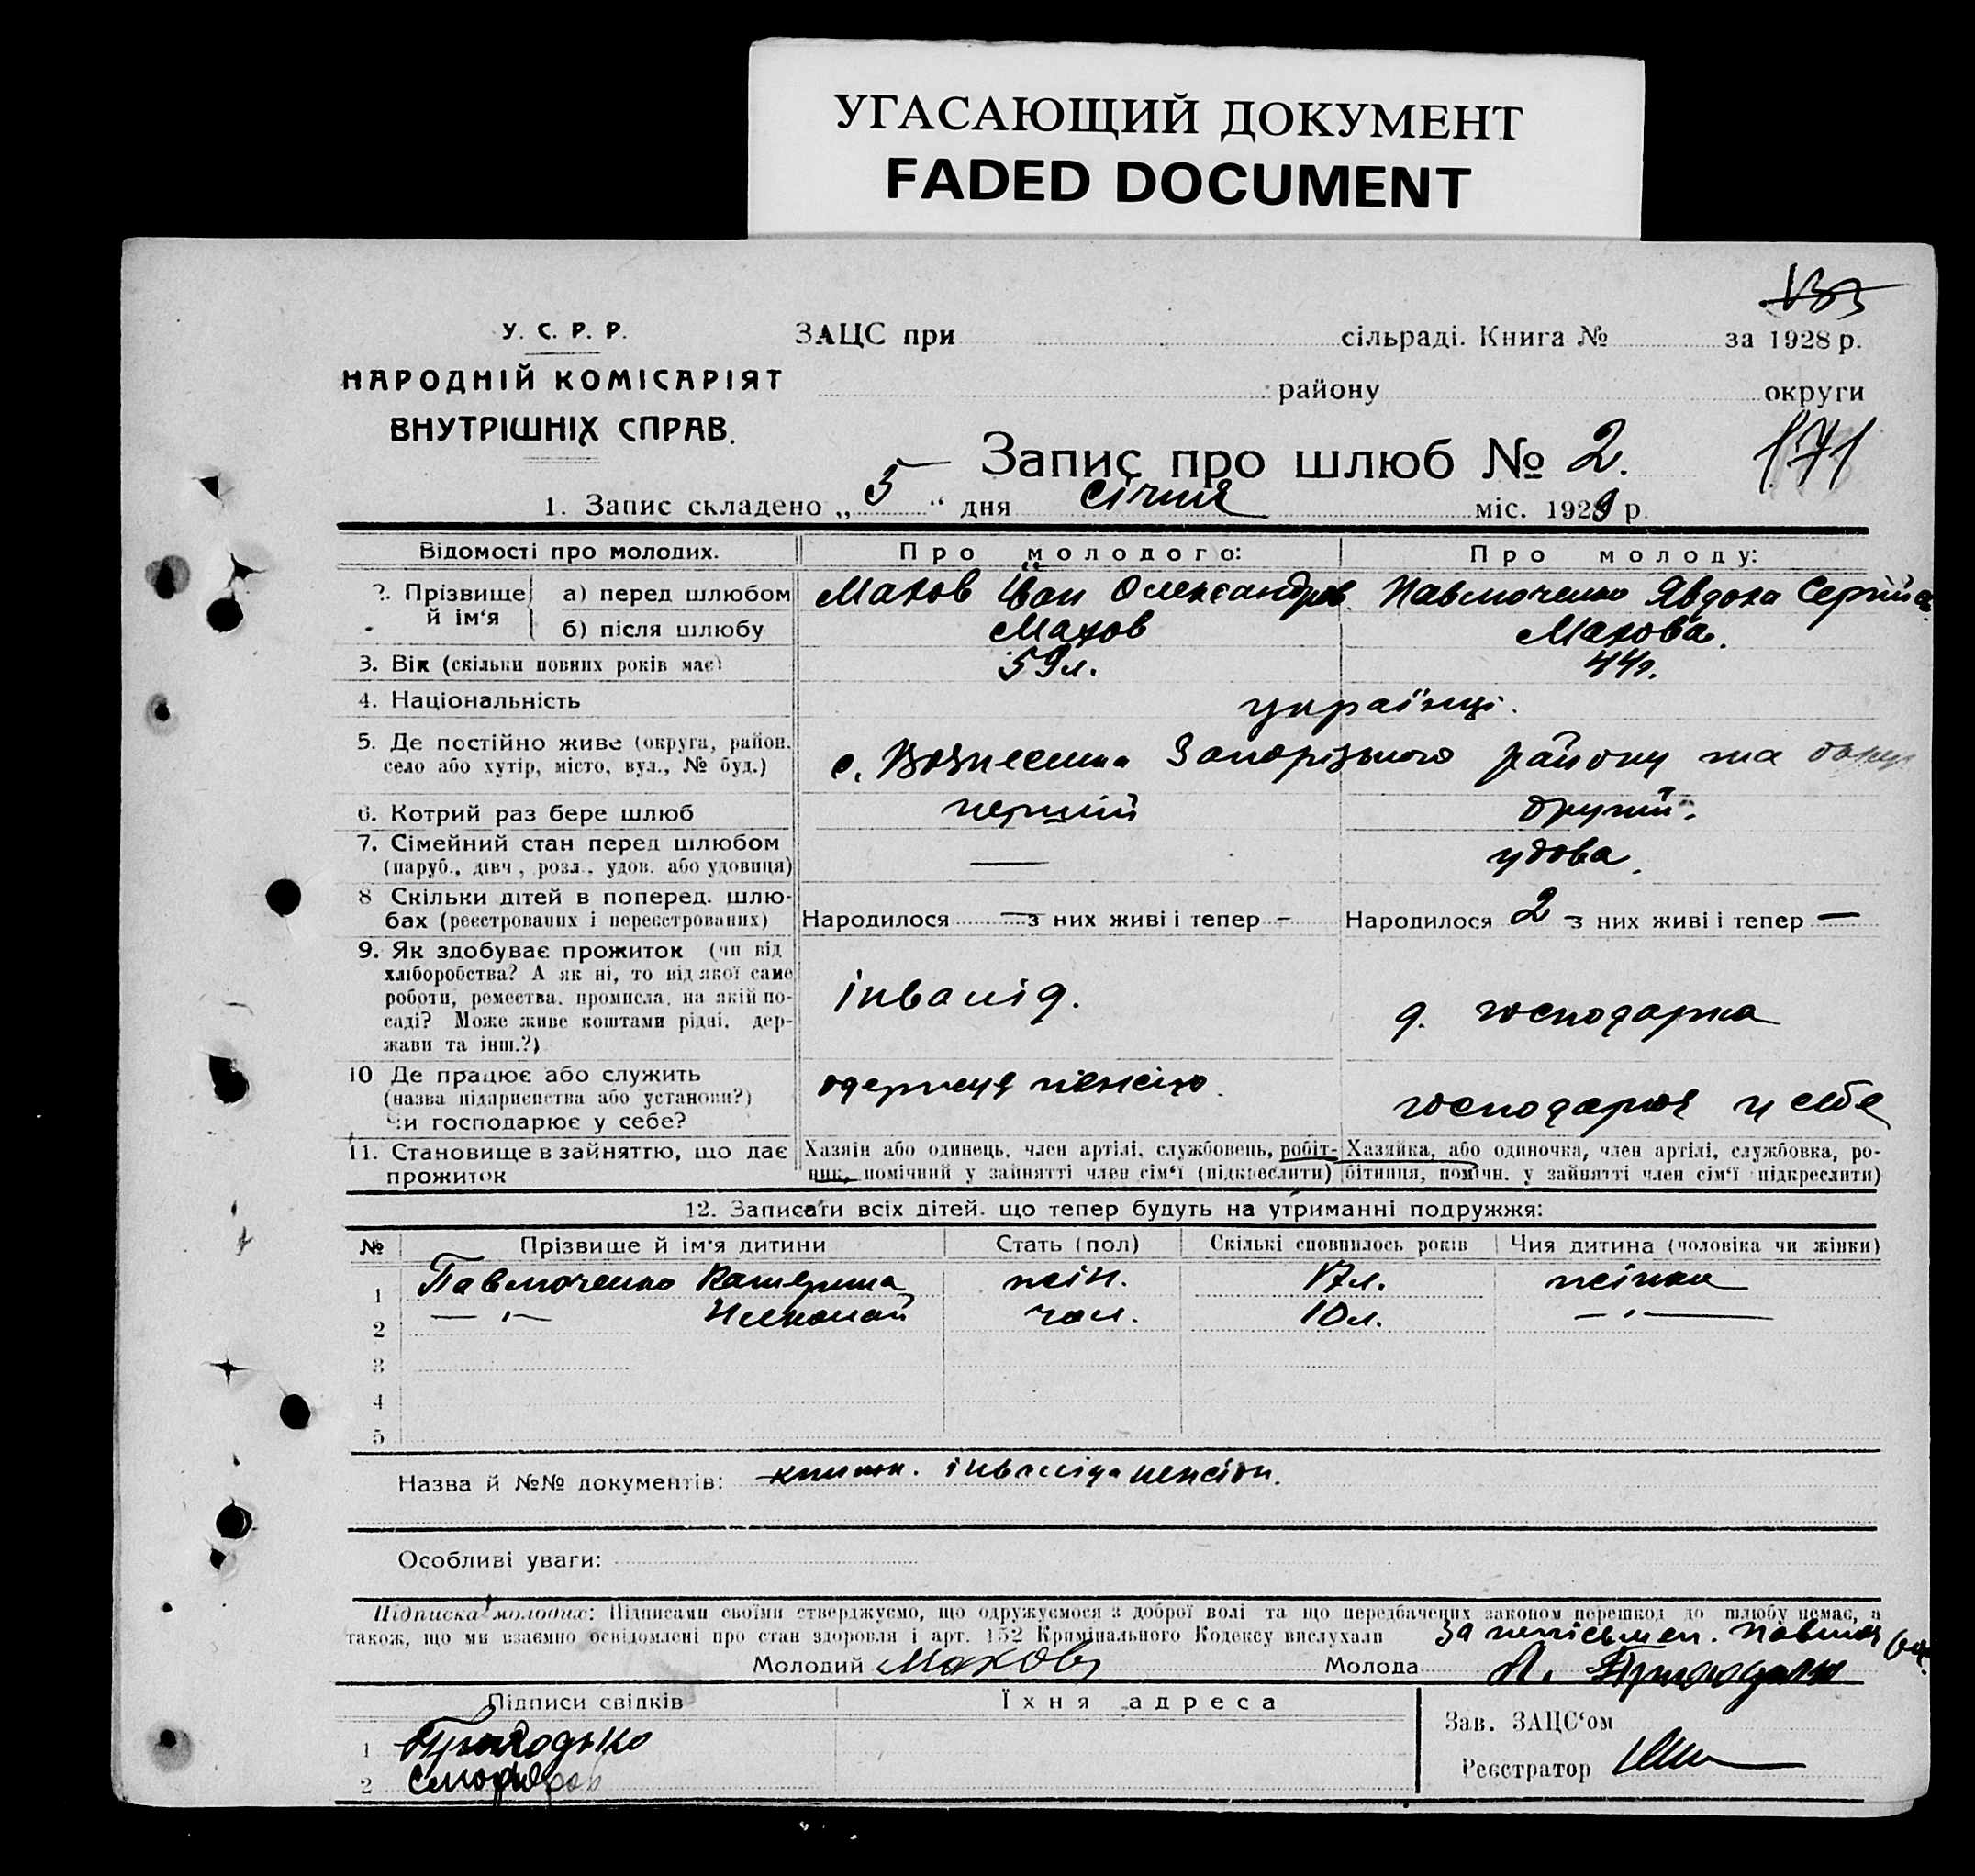 УГАСАЮЩИЙ ДОКУМЕНТ
FADED DOCUMENT
У. С. Р. Р.
НАРОДНІЙ КОМІСАРІЯТ
ВНУТРІШНІХ СПРАВ.
ЗАЦС при сільраді. Книга № за 1928 р.
району округи
Запис про шлюб № 2. 171
1. Запис складено „ 5 “ дня січня міс. 1929 р.
Відомості про молодих. Про молодого: Про молоду:
2. Прізвище й ім‘я а) перед шлюбом Махов Іван Олександров. Павлюченко Явдоха Сергійов
б) після шлюбу Махов Махова.
3. Вік (скільки повних років має) 59 л. 44 р.
4. Національність українці.
5. Де постійно живе (округа, район, село або хутір, місто, вул., № буд.) с. Вознесенка Запорізького району та округи
6. Котрий раз бере шлюб перший другий.
7. Сімейний стан перед шлюбом (паруб., дівч., розл., удов. або удовиця) — удова.
8 Скільки дітей в поперед. шлюбах (реєстрованих і нереєстрованих) Народилося — з них живі і тепер - Народилося 2 з них живі і тепер —
9. Як здобуває прожиток (чи від хліборобства? А як ні, то від якої саме роботи, ремества, промисла, на якій посаді? Може живе коштами рідні, держави та інш.?) інвалід. д. господарка
10 Де працює або служить (назва підприємства або установи?) Чи господарює у себе? одержує пенсію. господарює у себе
11. Становище в зайняттю, що дає прожиток Хазяїн або одинець, член артілі, службовець, робітник, помічний у зайнятті член сім‘ї (підкреслити) Хазяйка, або одиночка, член артілі, службовка, робітниця, помічн. у зайнятті член сім‘ї підкреслити)
12. Записати всіх дітей, що тепер будуть на утриманні подружжя:
№ Прізвище й ім‘я дитини Стать (пол) Скількі сповнилось років Чия дитина (чоловіка чи жінки)
1 Павлюченко Катерина жін. 17 л. жінки
2 — " — Николай чол. 10 л. — " —
3
4
5
Назва й №№ документів: книжк. інваліда пенсіон.
Особливі уваги:
Підписка молодих: Підписами своїми стверджуємо, що одружуємося з доброї волі та що передбачених законом перешкод до шлюбу немає, а
також, що ми взаємно освідомлені про стан здоровля і арт. 152 Кримінального Кодексу вислухали За неписьмен.
Молодий Махов Молода Приходько
Підписи свідків Їхня адреса
Зав. ЗАЦС‘ом
1 Приходько
Реєстратор
2